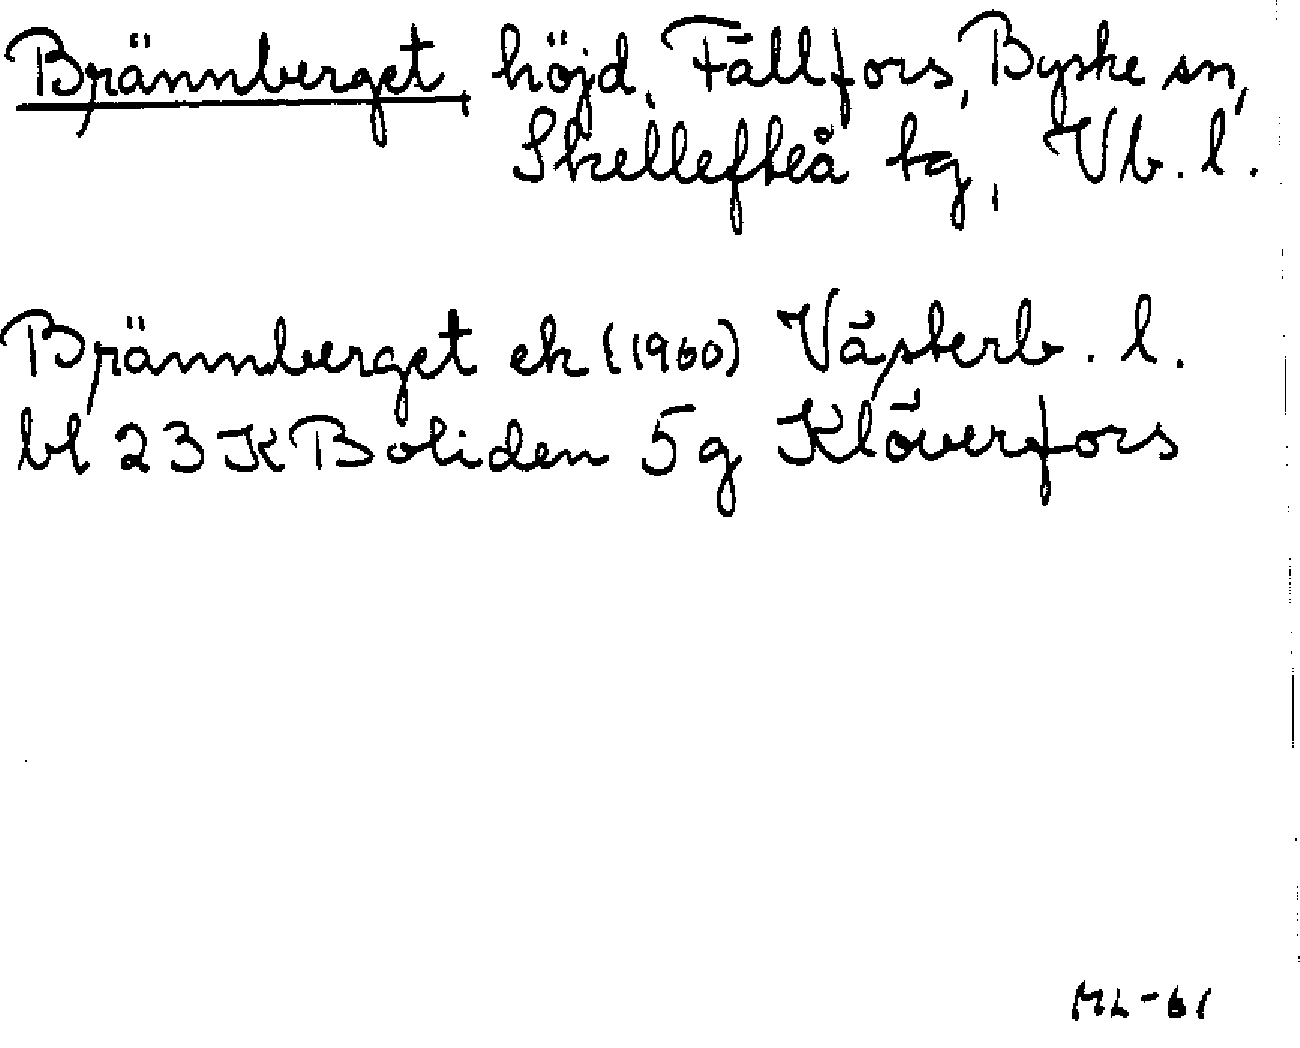 Brännberget, höjd, Fällfors, Byske sn,
Skellefteå tg, Vb. l.
Brännberget ek (1960) Västerb. l.
bl 23 K Boliden 5g Klöverfors
ML-61